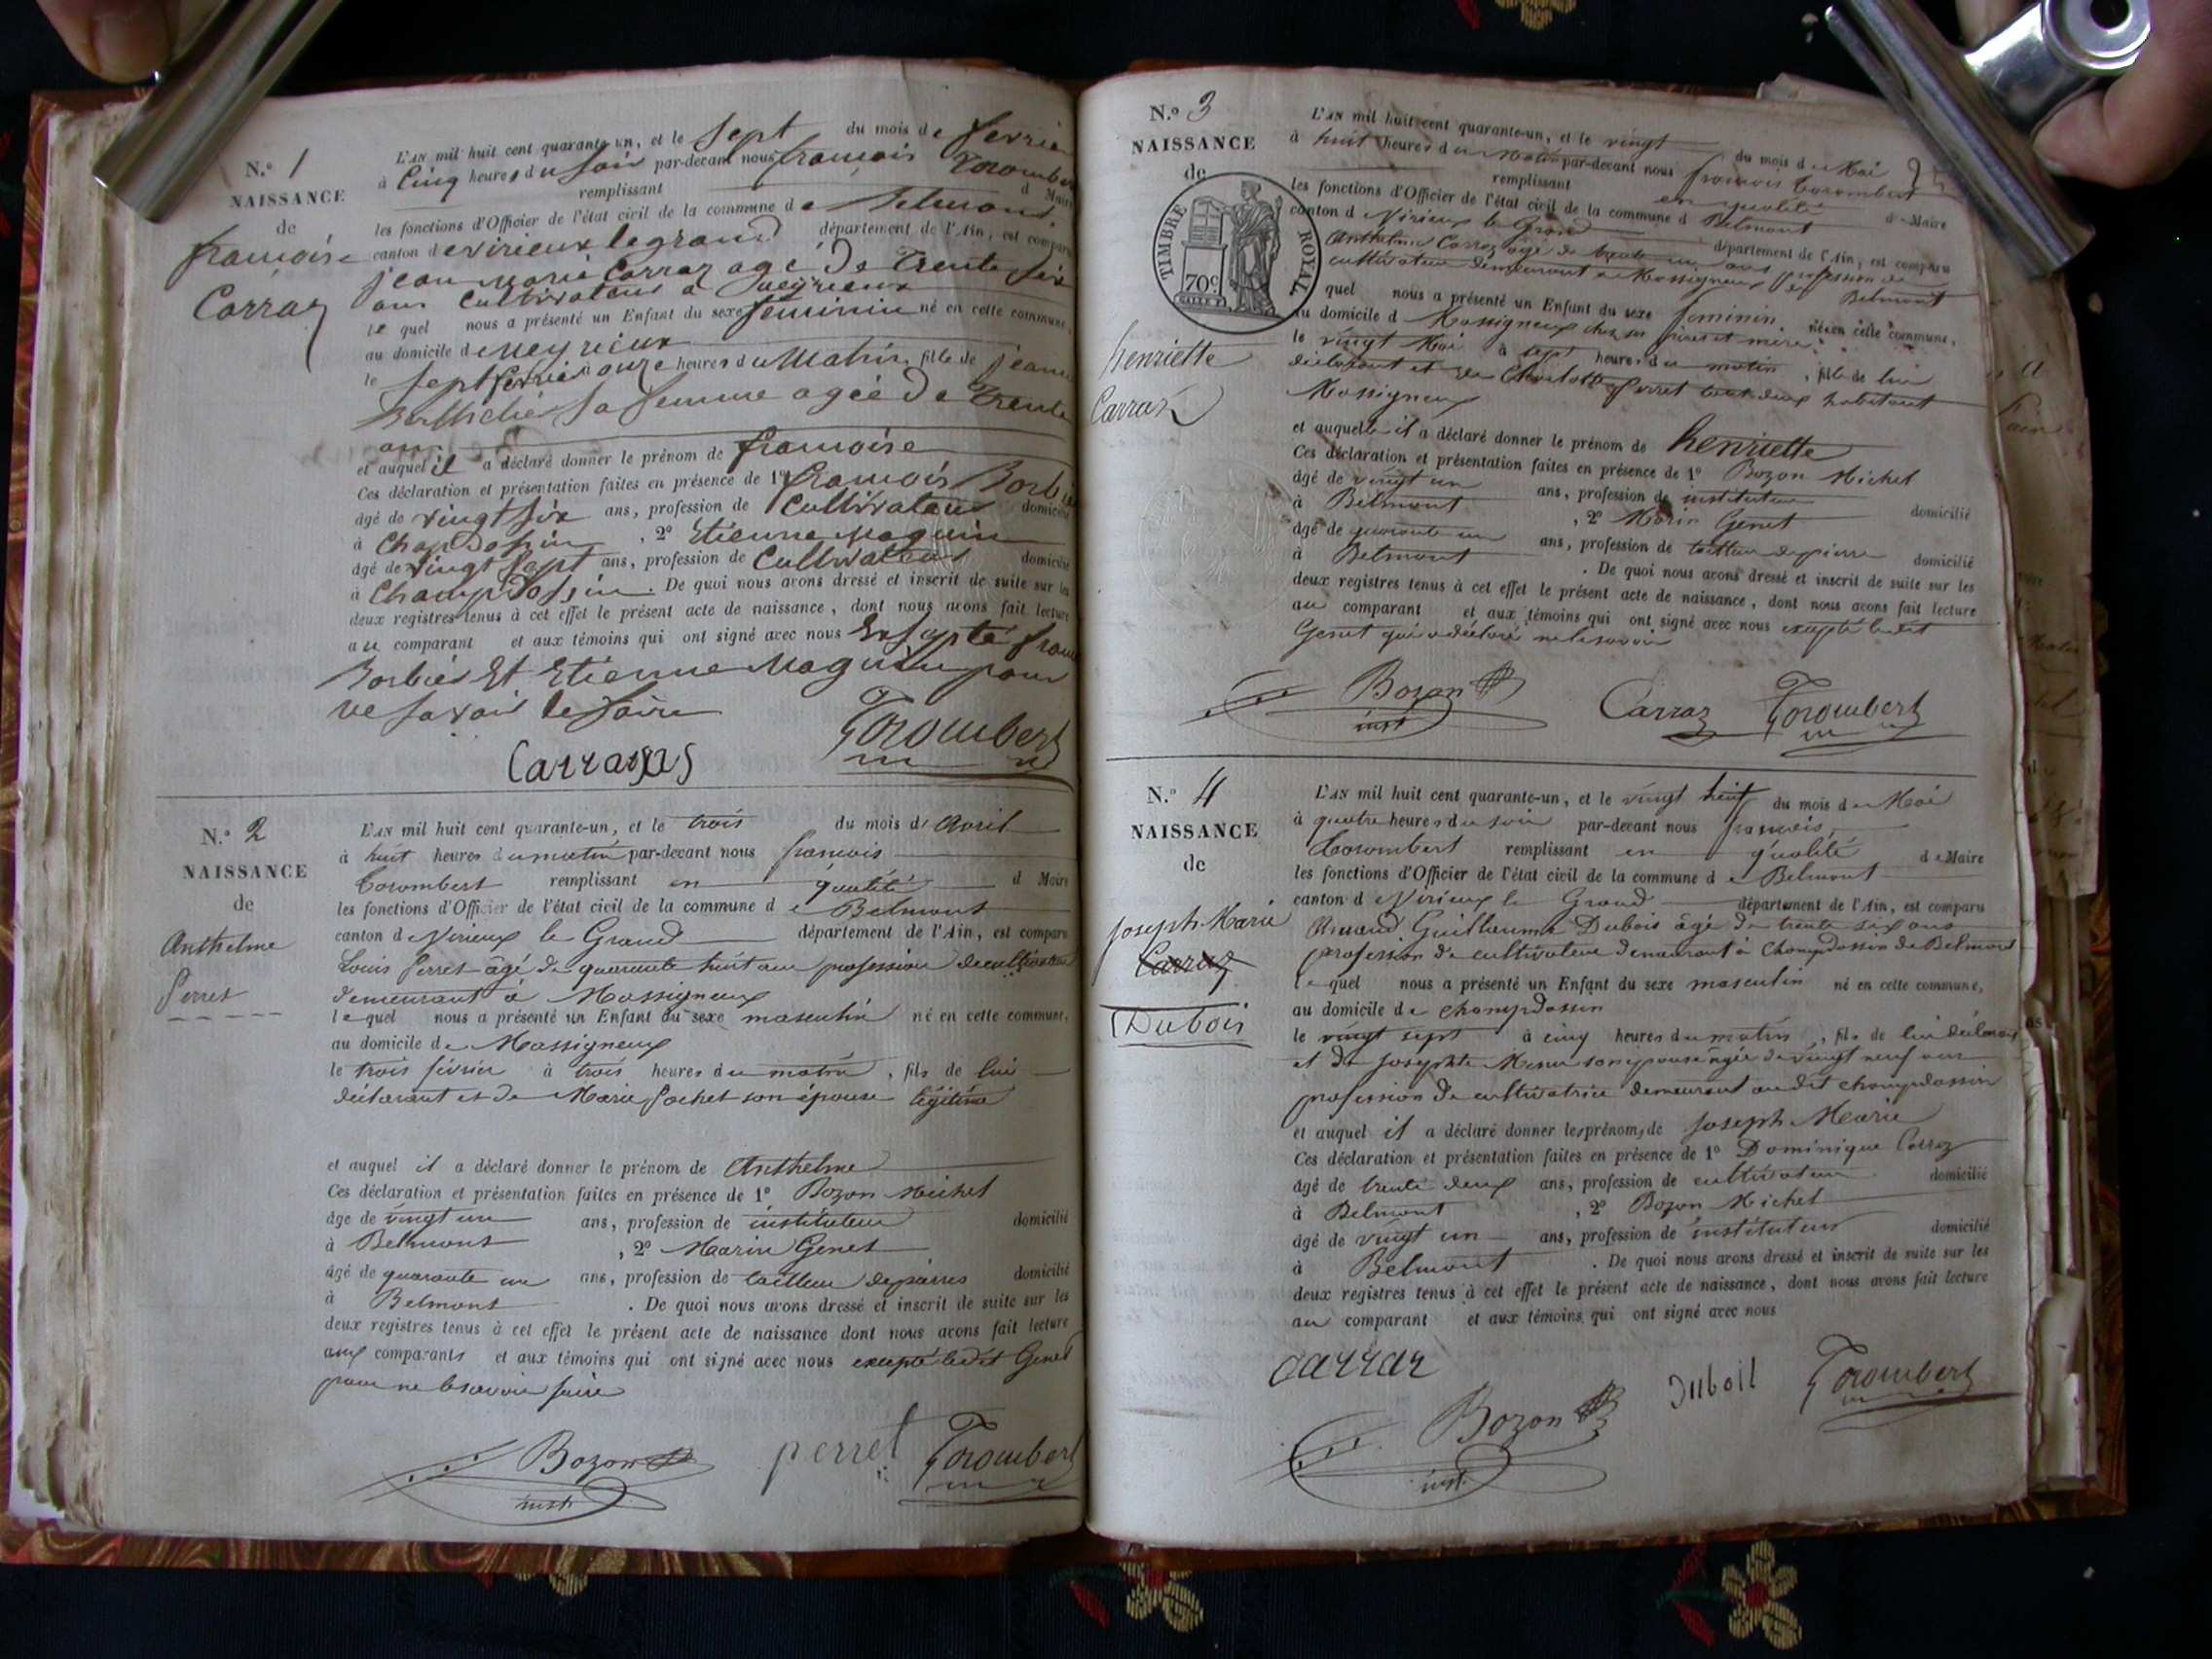 N.o 1
NAISSANCE
de
françoise
Carraz
L'AN mil huit cent quarante un, et le sept du mois de fevrier
à Cinq heures du soir par-devant nous françois Torombert
remplissant d Maire
les fonctions d'Officier de l'état civil de la commune de Belmont
canton de virieux legrand département de l'Ain, est comparu
jean Marie Carraz agé De Trente six
ans Cultivateur a
le quel nous a présenté un Enfant du sexe féminin né en cette commune,
au domicile de
le sept fevrier à onze heures du Matin, fille de jeanne
sa femme agée De Trente
ans
et auquel il a déclaré donner le prénom de françoise
Ces déclaration et présentation faites en présence de 1o françois Borbier
âgé de vingt six ans, profession de Cultivateur domicilié
à Chandossin, 2o Etienne Maguin
âgé de vingt sept ans, profession de Cultivateur domicilié
à Champdossin. De quoi nous avons dressé et inscrit de suite sur les
deux registres tenus à cet effet le présent acte de naissance, dont nous avons fait lecture
au comparant et aux témoins qui ont signé avec nous Exsepté
Borbier Et Etienne Maguin pour
ne savoir le faire
Torombert
N.o 2
NAISSANCE
de
Anthelme
Perret
L'AN mil huit cent quarante-un, et le trois du mois d' Avril
à huit heures du matin par-devant nous francois
Torombert remplissant en qualité d Maire
les fonctions d'Officier de l'état civil de la commune de Belmont
canton de Virieux le Grand département de l'Ain, est comparu
Louis Perret âgé de quarante huit ans profession de cultivateur
demeurant à Massigneux
lequel nous a présenté un Enfant du sexe masculin né en cette commune,
au domicile de Massigneux
le trois février à trois heures du matin, fils de lui
déclarant et de Marie Pochet son épouse légitime
et auquel il a déclaré donner le prénom de Anthelme
Ces déclaration et présentation faites en présence de 1o Bozon Michel
âgé de vingt un ans, profession de instituteur domicilié
à Belmont, 2o Marin Genet
âgé de quarante un ans, profession de tailleur de pierres domicilié
à Belmont. De quoi nous avons dressé et inscrit de suite sur les
deux registres tenus à cet effet le présent acte de naissance dont nous avons fait lecture
aux comparants et aux témoins qui ont signé avec nous excepté ledit Genet
pour ne le savoir faire
Bozon perret Torombert
inst.
N.o 3
NAISSANCE
de
TIMBRE ROYAL
70c
henriette
Carraz
L'AN mil huit cent quarante-un, et le vingt du mois de Mai
à huit heures du matin par-devant nous francois Torombert
remplissant en qualité de Maire
les fonctions d'Officier de l'état civil de la commune d Belmont
canton d Virieux le Grand département de l'Ain, est comparu
Anthelme Carraz âgé de trente un ans profession de
cultivateur demeurant à Massigneux de Belmont
quel nous a présenté un Enfant du sexe feminin né en cette commune,
au domicile d Massigneux chez ses père et mère
le vingt Mai à sept heures du matin, fille de lui
déclarant et de Charlotte Perret tout deux habitant
Massigneux
et auquelle il a déclaré donner le prénom de henriette
Ces déclaration et présentation faites en présence de 1o Bozon Michel
âgé de vingt un ans, profession de instituteur
à Belmont, 2o Marin Genet domicilié
âgé de quarante un ans, profession de tailleur de pierre domicilié
à Belmont. De quoi nous avons dressé et inscrit de suite sur les
deux registres tenus à cet effet le présent acte de naissance, dont nous avons fait lecture
au comparant et aux témoins qui ont signé avec nous excepté ledit
Genet qui a déclaré ne le savoir
Bozon Carraz Torombert
inst
N.o 4
NAISSANCE
de
Joseph Marie
Carraz
Dubois
L'AN mil huit cent quarante-un, et le vingt huit du mois de Mai
à quatre heures du soir par-devant nous francois
Torombert remplissant en qualité de Maire
les fonctions d'Officier de l'état civil de la commune de Belmont
canton d Virieux le Grand département de l'Ain, est comparu
Guillaume Dubois âgé de trente six ans
profession de cultivateur demeurant à Champdossin de Belmont
lequel nous a présenté un Enfant du sexe masculin né en cette commune,
au domicile de champdossin
le vingt sept à cinq heures du matin, fils de lui déclarant
et de Josephte son épouse âgée de vingt neuf ans
profession de cultivatrice demeurant audit champdossin
et auquel il a déclaré donner les prénoms de Joseph Marie
Ces déclaration et présentation faites en présence de 1o Dominique Carraz
âgé de trente deux ans, profession de cultivateur domicilié
à Belmont, 2o Bozon Michel
âgé de vingt un ans, profession de instituteur domicilié
à Belmont. De quoi nous avons dressé et inscrit de suite sur les
deux registres tenus à cet effet le présent acte de naissance, dont nous avons fait lecture
au comparant et aux témoins qui ont signé avec nous
carraz Bozon duboil Torombert
inst.